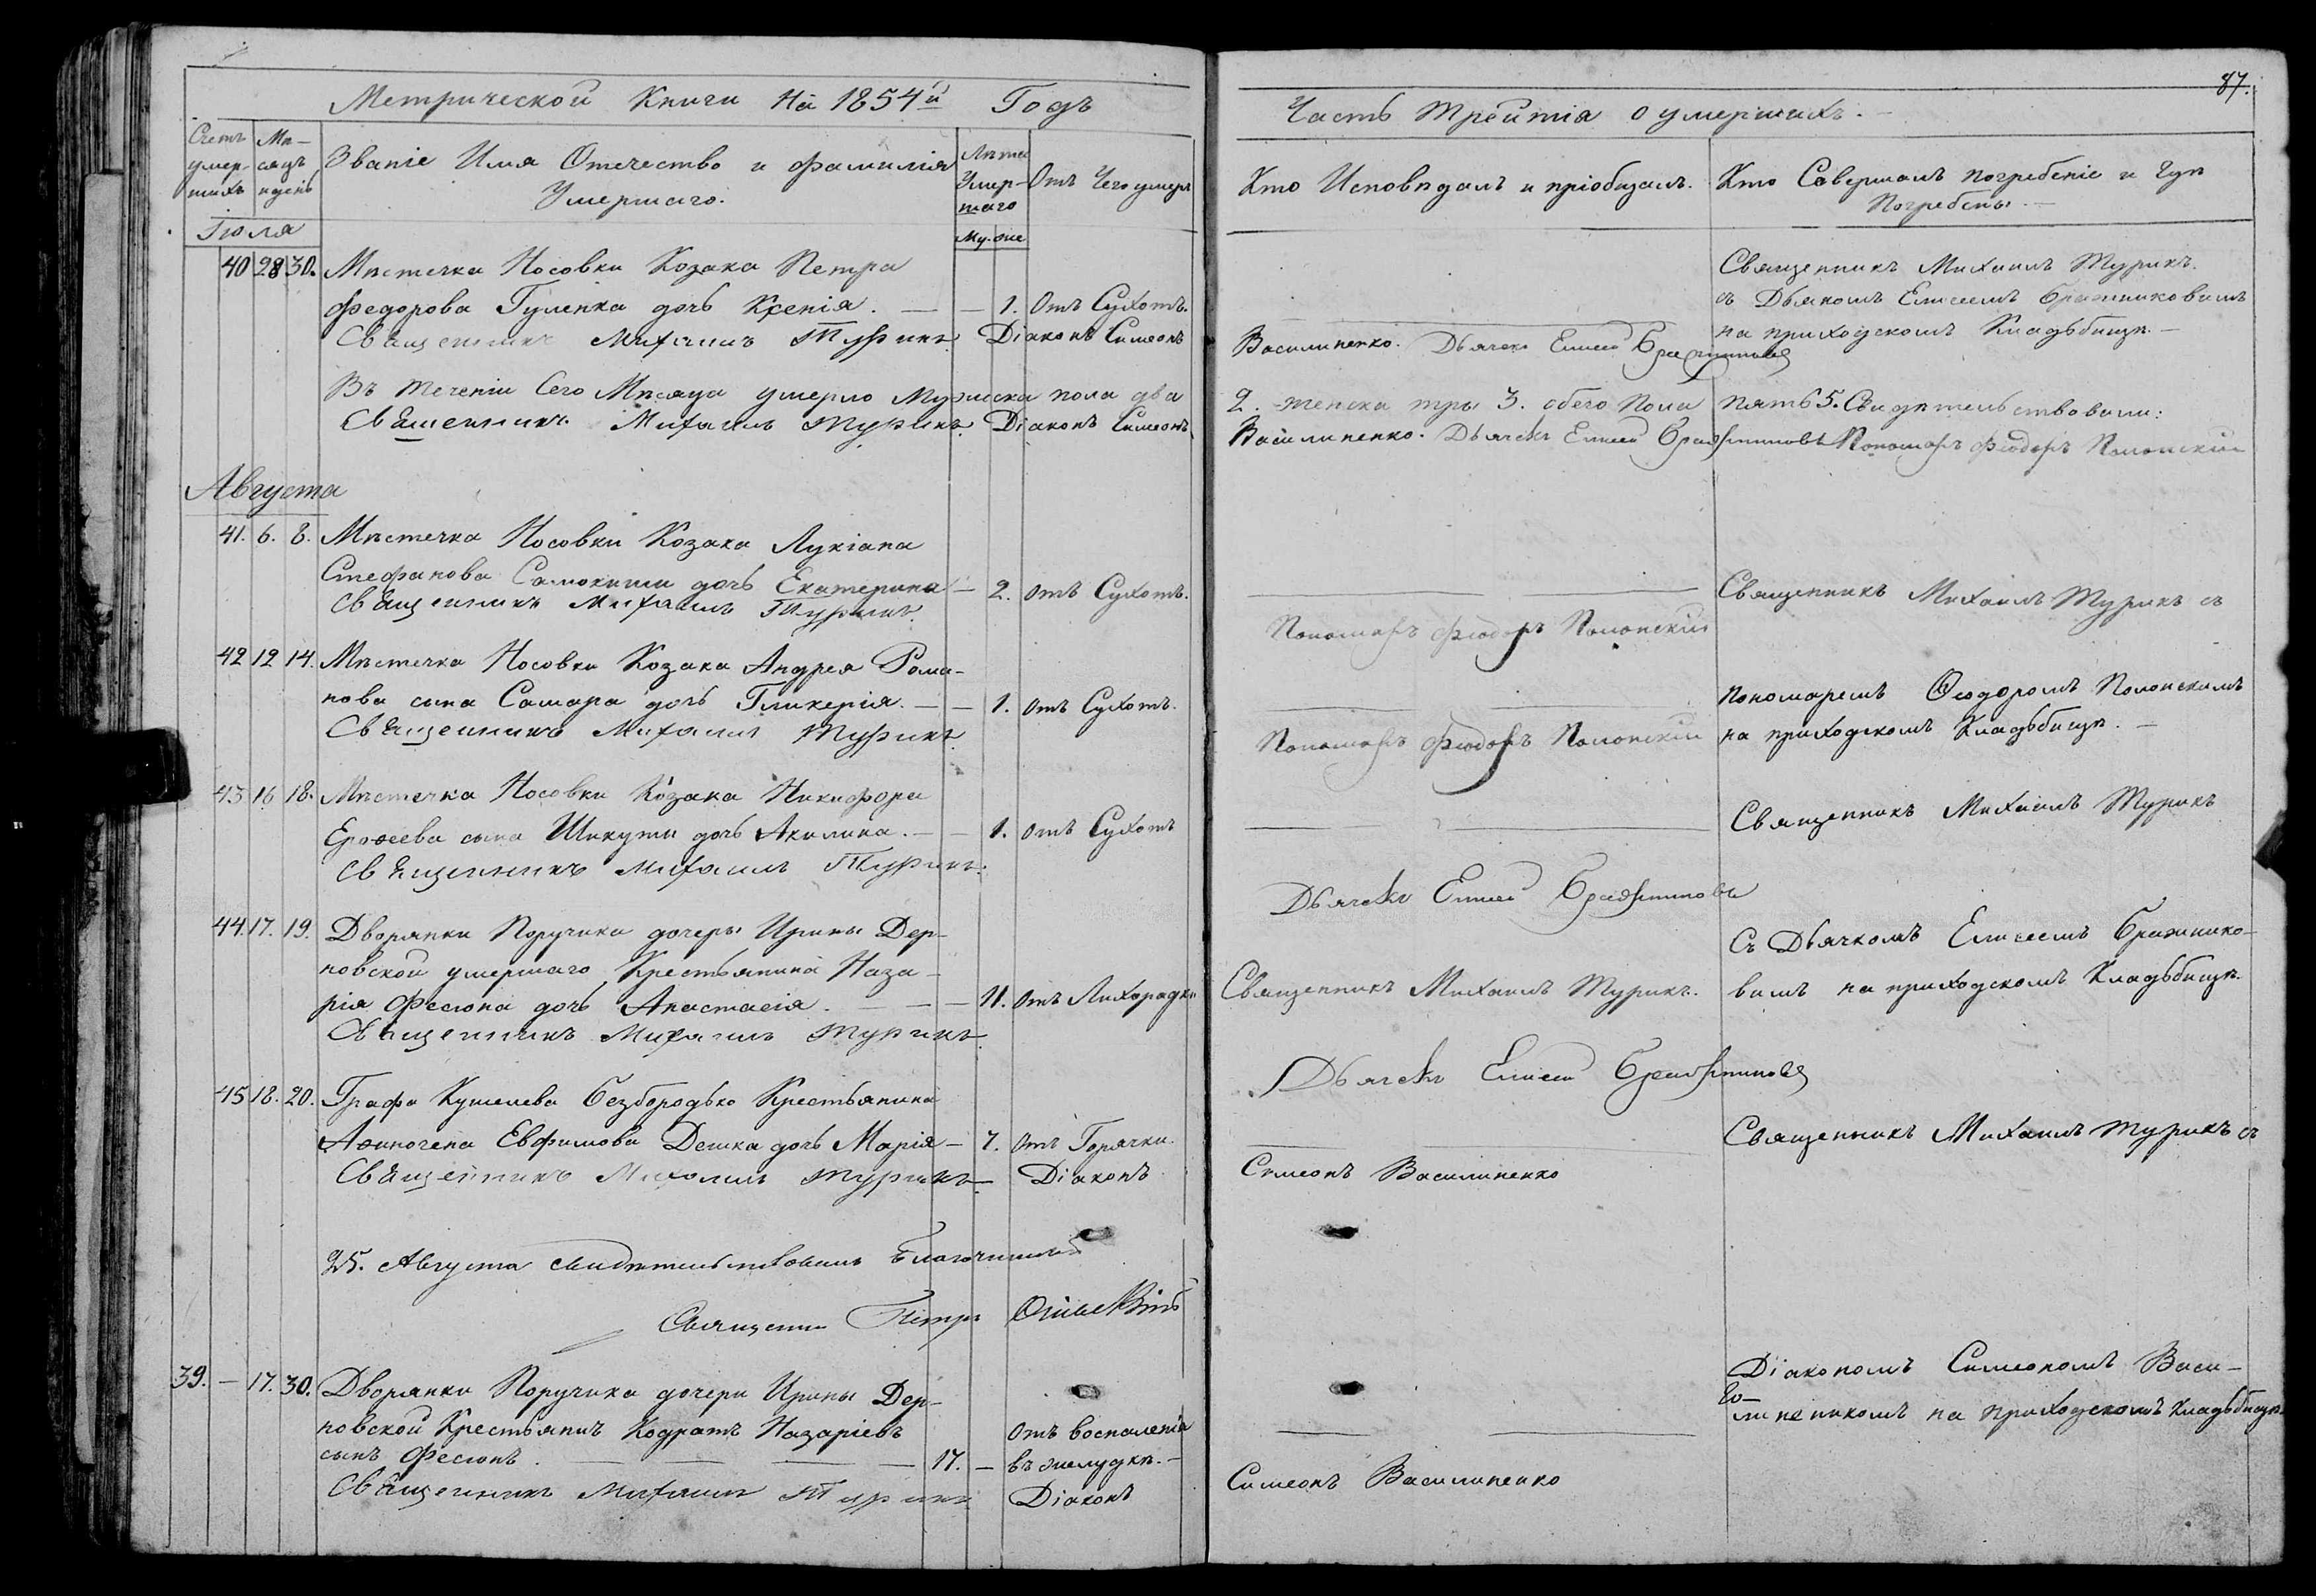 Метрической Книги На 1854й Годъ
Счетъ умер-шихъ
Мѣ-сяцъ и день
Званіе Имя Отечество и фамилія
Умершаго.
Лѣта Умер-шаго
Му. же
Отъ Чего умеръ
Іюля
40 28 30. Мѣстечка Носовки Козака Петра
Федорова Гуленка дочь Ксенія. — — 1. Отъ Сухотъ.
Священникъ Михаилъ Турикъ. Діаконъ Симеонъ
Въ теченіи Сего Мѣсяца умерло Мужеска пола два
Священникъ Михаилъ Турикъ. Діаконъ Симеонъ
Августа
41. 6. 8. Мѣстечка Носовки Козака Лукіана
Стефанова Самокиши дочь Екатерина — 2. отъ Сухотъ.
Священникъ Михаилъ Турикъ.
42 12 14. Мѣстечка Носовки Козака Андрея Рома-
нова сына Самара дочь Гликерія. — — 1. отъ Сухотъ.
Священникъ Михаилъ Турикъ.
43 16 18. Мѣстечка Носовки Козака Никифора
Ерофеева сына Шикути дочь Акилина. — — 1. отъ Сухотъ
Священникъ Михаилъ Турикъ.
44. 17. 19. Дворянки Поручика дочери Ирины Дер-
новской умершаго Крестьянина Наза-
рія Фесюна дочь Анастасія. — — 11. отъ Лихорадки
Священникъ Михаилъ Турикъ
45 18. 20. Графа Кушелева Безбородько Крестьянина
Афиногена Евфимова Дешка дочь Марія — 7. отъ Горячки.
Священникъ Михаилъ Турикъ Діаконъ
25. Августа свидѣтельствовалъ Благочинный
Священник Петръ
39. — 17. 30. Дворянки Поручика дочери Ирины Дер-
новской Крестьянинъ Кодратъ Назаріевъ отъ воспаленія
сынъ Фесюнъ. — — — 17. — въ желудкѣ. —
Священникъ Михаилъ Турикъ Діаконъ
87.
Часть третія о умершихъ. —
Кто Исповѣдалъ и пріобщалъ.
Кто Совершалъ погребеніе и Гдѣ
Погребены. —
Священникъ Михаилъ Турикъ.
съ Дьякомъ Елисеемъ Бражниковымъ
на приходскомъ Кладьбищѣ. —
Василиненко. Дьячекъ Елисей Бражниковъ
2. женска три 3. обего пола пять 5. Свидѣтельствовали:
Василиненко. Дьячекъ Елисей Бражниковъ Пономарь Феодоръ Полонскій
Священникъ Михаилъ Турикъ съ
Пономарь Феодоръ Полонскій
пономаремъ Ѳеодоромъ Полонскимъ
на приходскомъ Кладьбищѣ. —
Пономарь Феодоръ Полонскій
Священникъ Михаилъ Турикъ
Дьячекъ Елисей Бражниковъ
Съ Дьячкомъ Елисеемъ Бражнико-
вымъ на приходскомъ Кладьбищѣ.
Священникъ Михаилъ Турикъ.
Дьячекъ Елисей Бражниковъ
Священникъ Михаилъ Турикъ съ
Симеонъ Василиненко
Діакономъ Симеономъ Васи-
линенкомъ на приходскомъ Кладьбищѣ.
Симеонъ Василиненко